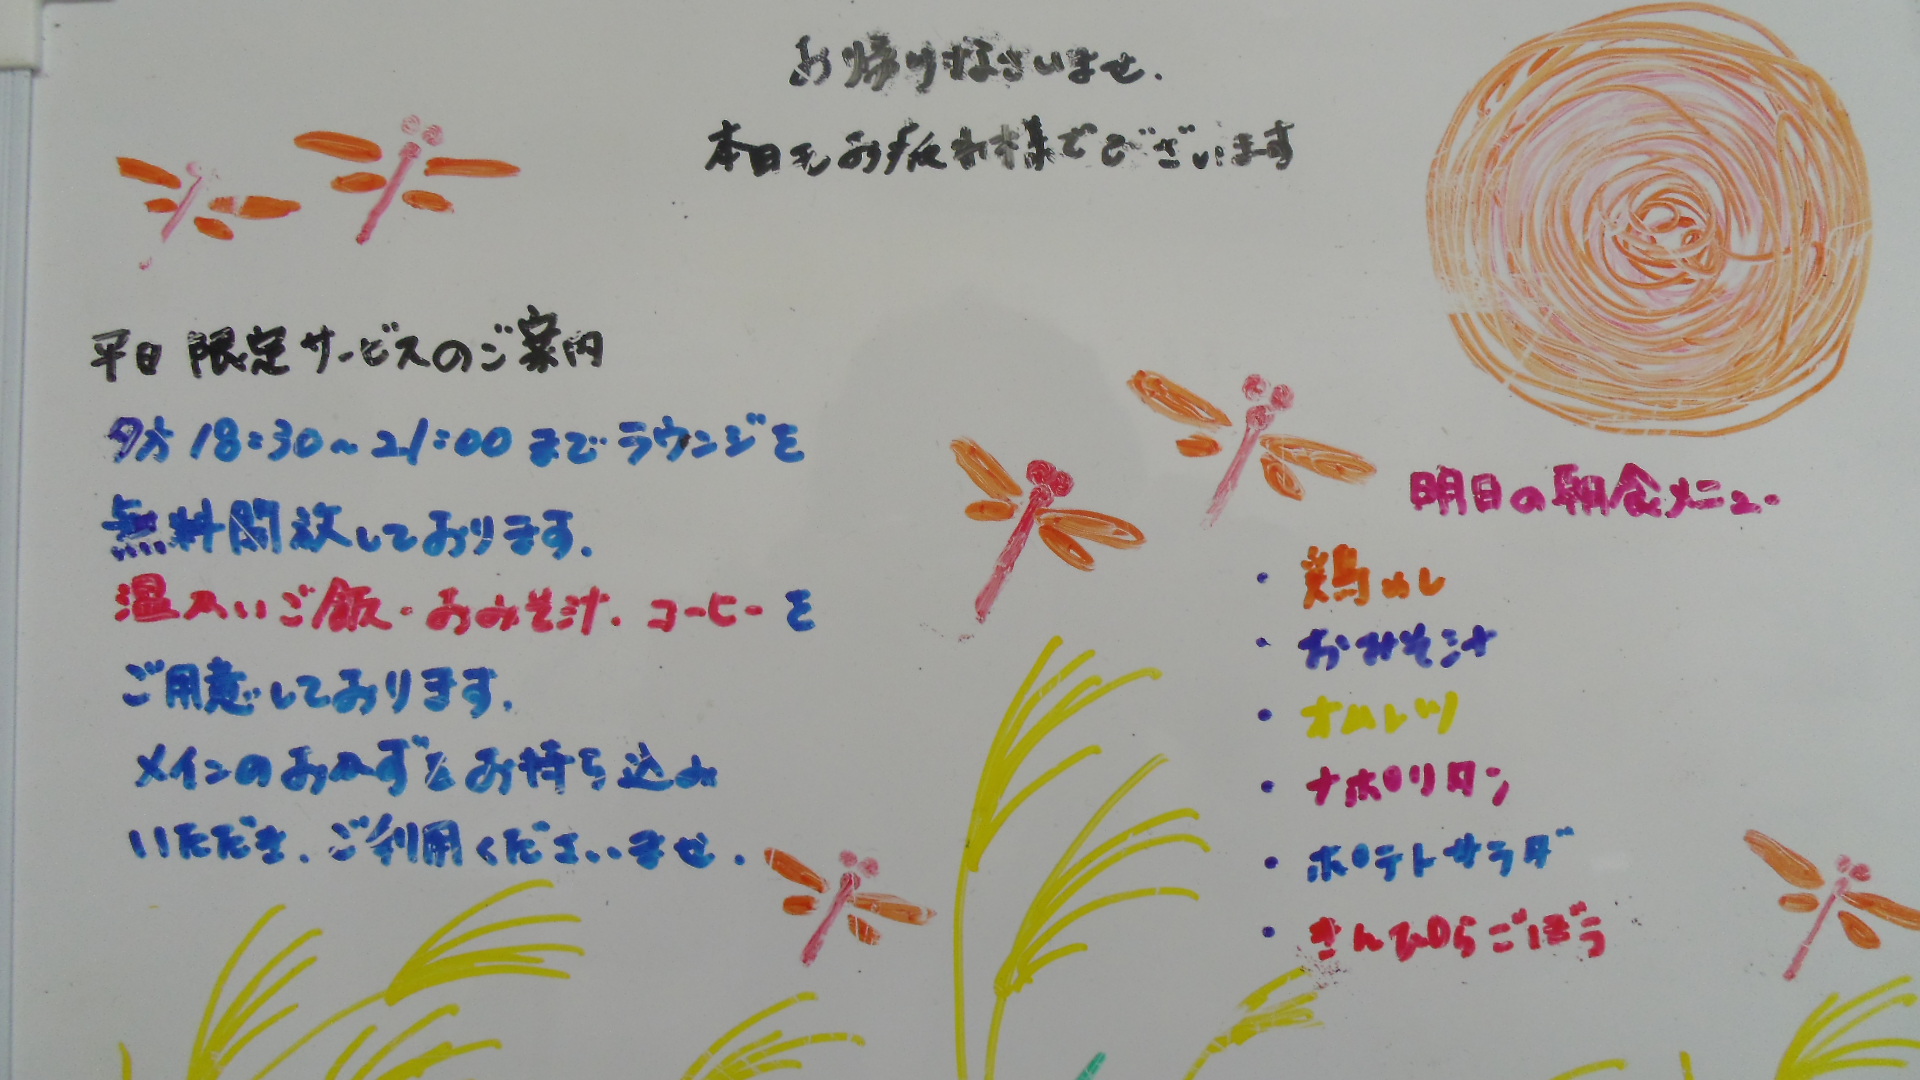 お帰りなさいませ.
本日もお疲れ様でございます
平日限定サービスのご案内
夕方18:30～21:00までラウンジを
無料開放しております.
温かいご飯・おみそ汁.コーヒーを
ご用意しております.
メインのおかずをお持ち込み
いただき.ご利用くださいませ.
明日の朝食メニュー
・鶏めし
・おみそ汁
・オムレツ
・ナポリタン
・ポテトサラダ
・きんぴらごぼう